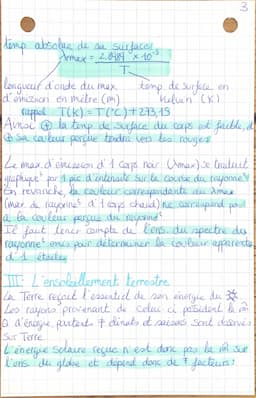 3
temp absolue de sa surface:
λmax = 2.8989 × 10⁻³
T
longueur d'onde du max temp. de surface en
d'émission en mètre (m) Kelvin (K)
rappel T(K) = T(°C) + 273,15
Ainsi ⊕ la temp de surface du corps est faible,
⊕ sa couleur perçue tendra vers les rouges
Le max d'émission d'1 corps noir (λmax) se traduit
graphiqueᵗ par 1 pic d'intensité sur la courbe du rayonneᵗ
En revanche, la couleur correspondante au λmax
(max de rayonneᵗ d'1 corps chaud) ne correspond pas
à la couleur perçue du rayonneᵗ
Il faut tenir compte de l'ens. du spectre du
rayonneᵗ émis pour déterminer la couleur apparente
d'1 étoile
III: L'ensoleillement terrestre
La Terre reçoit l'essentiel de son énergie du
Les rayons provenant de celui ci possèdent la m̂
Q d'énergie, pourtant ≠ climats et saisons sont observés
sur Terre
L'énergie solaire reçue n'est donc pas la m̂ sur
l'ens du globe et dépend donc de ≠ facteurs: